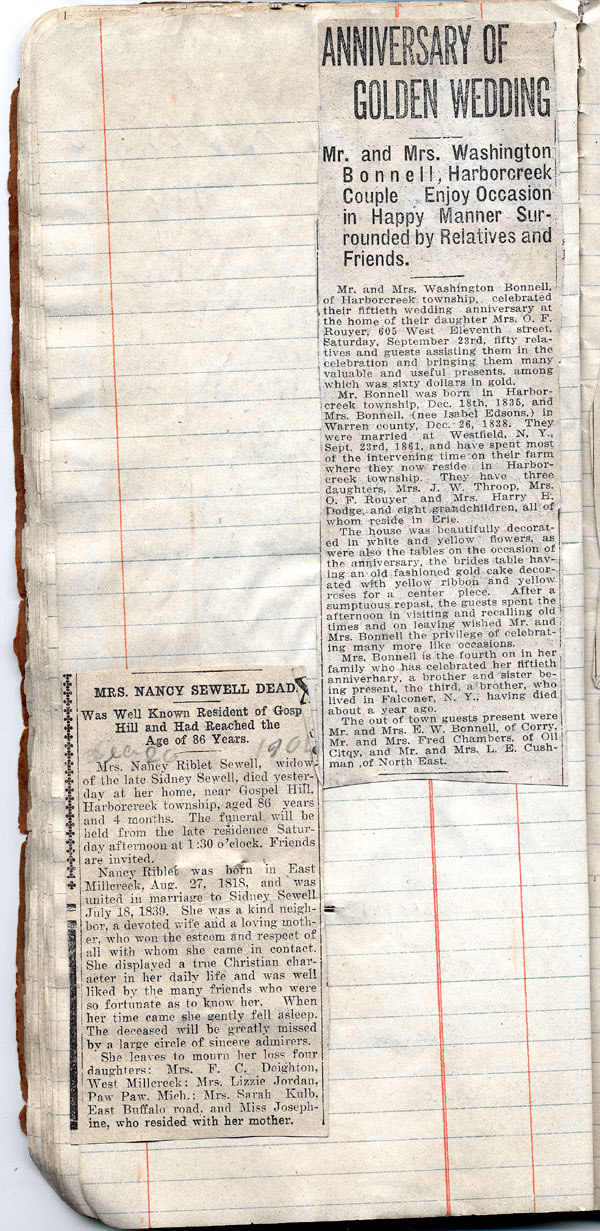 ANNIVERSARY OF
GOLDEN WEDDING
Mr. and Mrs. Washington
Bonnell, Harborcreek
Couple Enjoy Occasion
in Happy Manner Sur-
rounded by Relatives and
Friends.
Mr. and Mrs. Washington Bonnell,
of Harborcreek township, celebrated
their fiftieth wedding anniversary at
the home of their daughter Mrs. O. F.
Rouyer, 605 West Eleventh street,
Saturday, September 23rd, fifty rela-
tives and guests assisting them in the
celebration and bringing them many
valuable and useful presents, among
which was sixty dollars in gold.
Mr. Bonnell was born in Harbor-
creek township, Dec. 18th, 1835, and
Mrs. Bonnell, (nee Isabel Edsons,) in
Warren county, Dec. 26, 1838. They
were married at Westfield, N. Y.,
Sept. 23rd, 1861, and have spent most
of the intervening time on their farm
where they now reside in Harbor-
creek township. They have three
daughters, Mrs. J. W. Throop, Mrs.
O. F. Rouyer and Mrs. Harry E.
Dodge, and eight grandchildren, all of
whom reside in Erie.
The house was beautifully decorat-
ed in white and yellow flowers, as
were also the tables on the occasion of
the anniversary, the brides table hav-
ing an old fashioned gold cake decor-
ated with yellow ribbon and yellow
roses for a center piece. After a
sumptuous repast, the guests spent the
afternoon in visiting and recalling old
times and on leaving wished Mr. and
Mrs. Bonnell the privilege of celebrat-
ing many more like occasions.
Mrs. Bonnell is the fourth on in her
family who has celebrated her fiftieth
anniverhary, a brother and sister be-
ing present, the third, a brother, who
lived in Falconer, N. Y., having died
about a year ago.
The out of town guests present were
Mr. and Mrs. E. W. Bonnell, of Corry,
Mr. and Mrs. Fred Chambers, of Oil
Citqy, and Mr. and Mrs. L. E. Cush-
man ,of North East.
MRS. NANCY SEWELL DEAD.
Was Well Known Resident of Gosp
Hill and Had Reached the
Age of 86 Years.
Mrs. Nancy Riblet Sewell, widow
of the late Sidney Sewell, died yester-
day at her home, near Gospel Hill,
Harborcreek township, aged 86 years
and 4 months. The funeral will be
held from the late residence Satur-
day afternoon at 1:30 o'clock. Friends
are invited.
Nancy Riblet was born in East
Millcreek, Aug. 27, 1818, and was
united in marriage to Sidney Sewell
July 18, 1839. She was a kind neigh-
bor, a devoted wife and a loving moth-
er, who won the esteem and respect of
all with whom she came in contact.
She displayed a true Christian char-
acter in her daily life and was well
liked by the many friends who were
so fortunate as to know her. When
her time came she gently fell asleep.
The deceased will be greatly missed
by a large circle of sincere admirers.
She leaves to mourn her loss four
daughters: Mrs. F. C. Deighton,
West Millcreek; Mrs. Lizzie Jordan,
Paw Paw, Mich.; Mrs. Sarah Kulb,
East Buffalo road, and Miss Joseph-
ine, who resided with her mother.